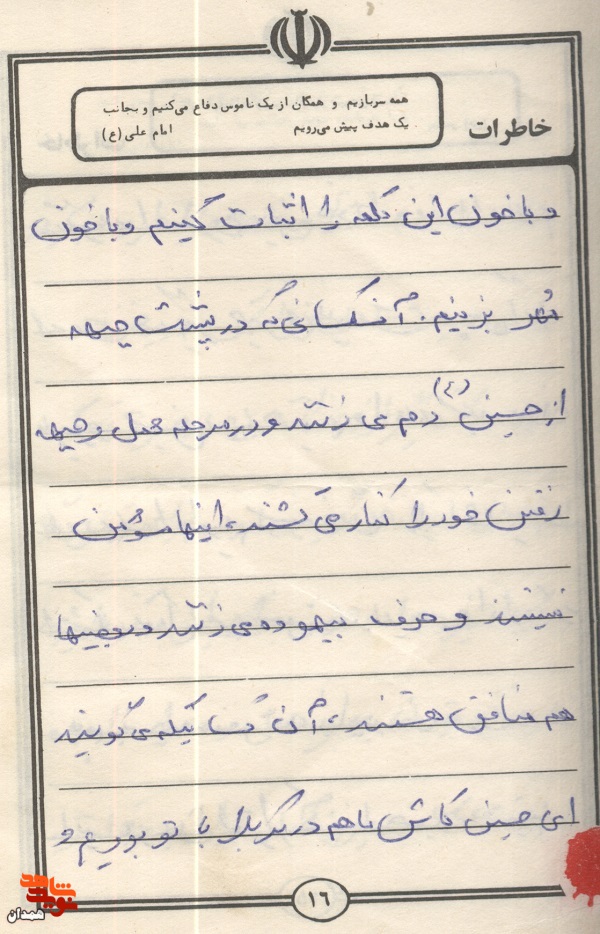 همه سربازیم و همگان از یک ناموس دفاع می‌کنیم و بجانب
یک هدف پیش می‌رویم امام علی (ع)
خاطرات
و با خون این کلمه را اثبات کنیم و با خون
مُهر بزنیم. آن کسانی که در پشت جبهه
از حسین (ع) دم می زنند و در مرحله عمل و جبهه
رفتن خود را کنار می کشند، اینها مؤمن
نیستند و حرف بیهوده می زنند و بعضیها
هم منافق هستند، آن کسانیکه می گویند
ای حسین کاش ما هم در کربلا با تو بودیم و
۱۶
نوید شاهد
همدان